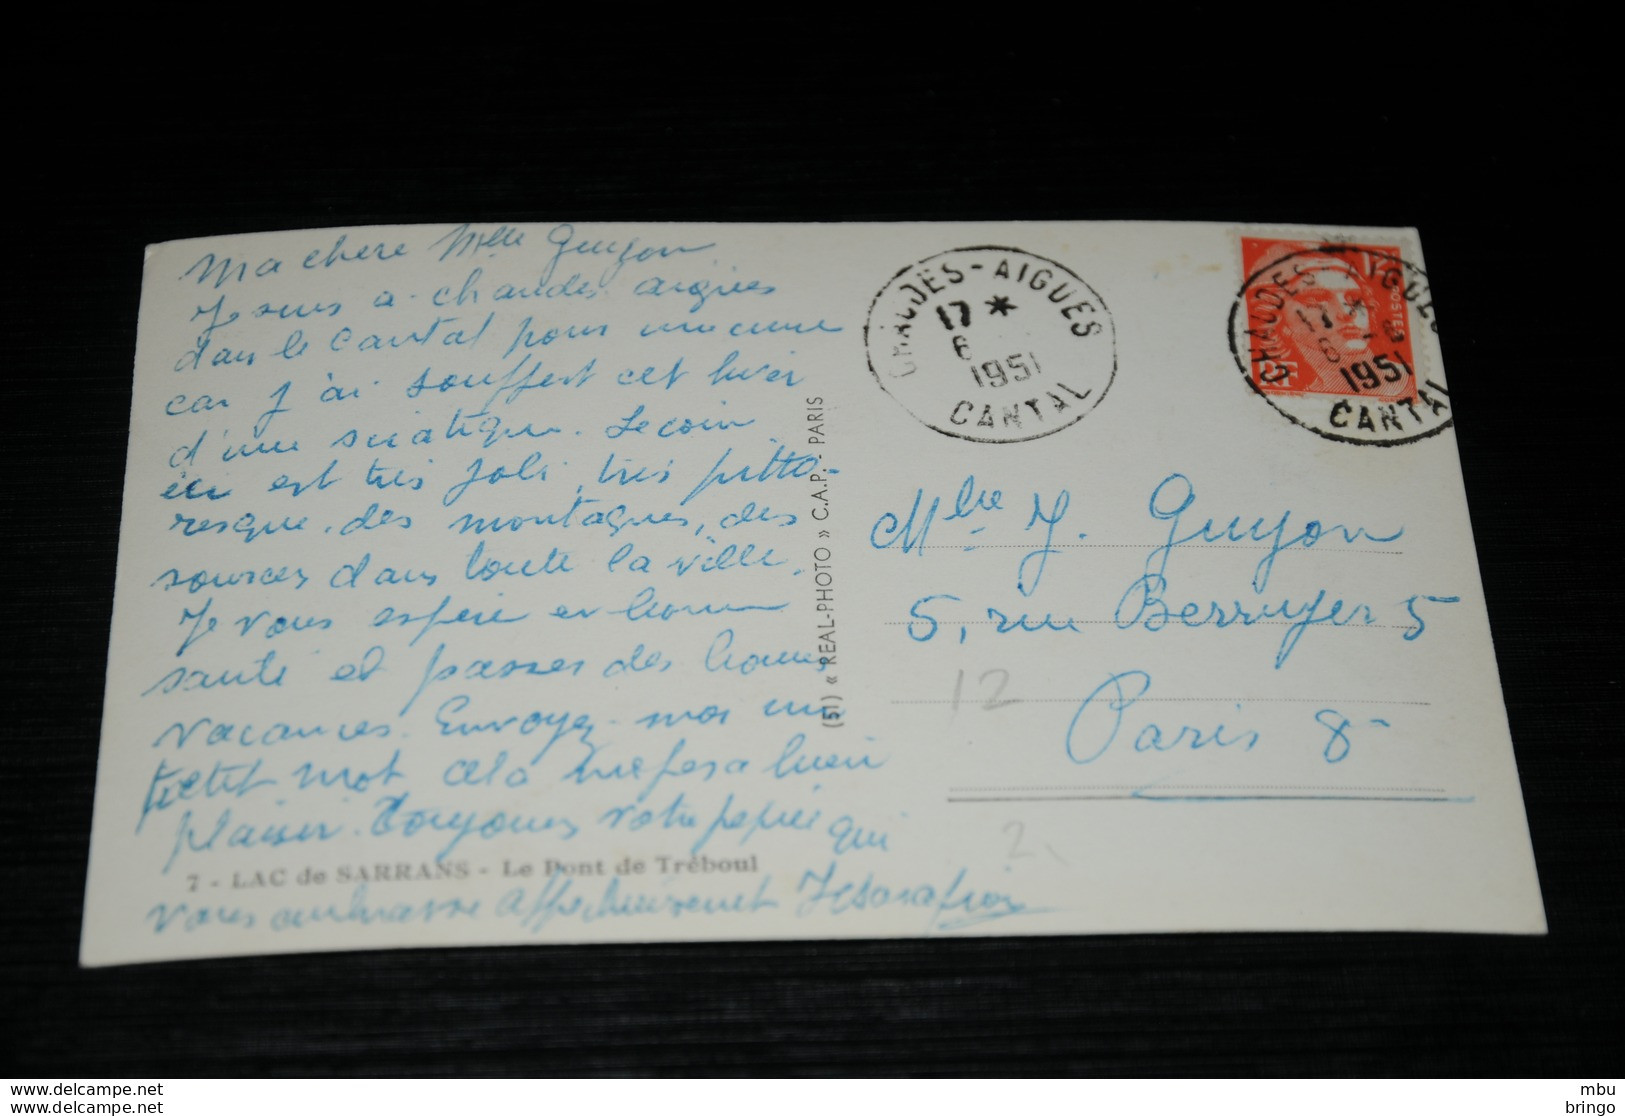 Ma chere Mlle Guyon
Je suis a chaudes aigues
dans le Cantal pour une cure
car j'ai souffert cet hiver
d'une sciatique. Le coin
ici est très joli, très pitto-
resque. des montagnes, des
sources dans toute la ville.
Je vous espère en bonne
santé et passer des bonnes
vacances. Envoyez-moi un
petit mot cela me fera bien
plaisir. Toujours votre pepée qui
vous embrasse affectueusement
7 - LAC de SARRANS - Le Pont de Tréboul
(51) « REAL-PHOTO » C.A.P. - PARIS
CHAUDES-AIGUES
17 *
6
1951
CANTAL
POSTES
CHAUDES-AIGUES
17 *
6 - 8
1951
CANTAL
Mlle J. Guyon
5, rue Berruyer 5
12
Paris 8-
2
delcampe.net
delcampe.net
mbu
bringo